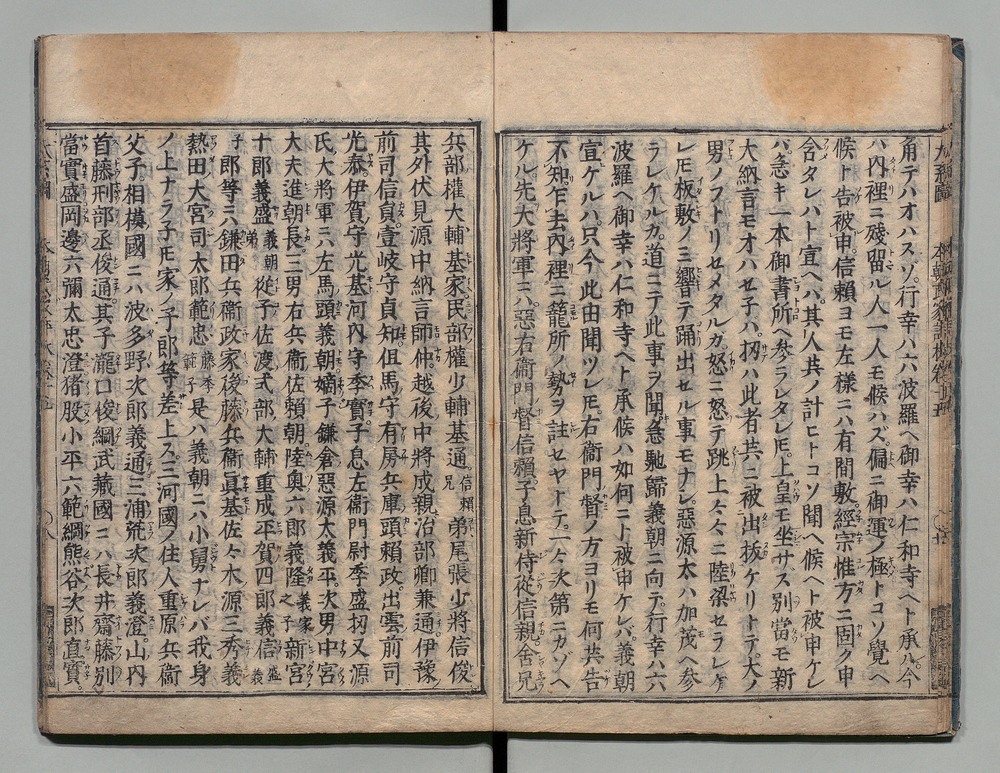 角テハオハスゾ。行幸ハ六波羅ヘ御幸ハ仁和寺ヘト承ハル。今
ハ内裡ニ殘留ル人一人モ候ハズ。偏ニ御運ノ極トコソ覺ヘ
候ト告被申。信賴ヨモ左樣ニハ有間敷。經宗惟方ニ固ク申
含タレハト宣ヘハ。其人共ノ計ヒトコソ聞ヘ候ヘト被申ケレ
バ。急キ一本御書所ヘ參ラレタレ𪜈。上皇モ坐サス別當モ新
大納言モオハセ子ハ。扨ハ此者共ニ被出拔ケリトテ。大ノ
男ノフトリセメタルカ。怒ニ怒テ跳上々々ニ陸梁セラレケ
レ𪜈板敷ノミ響テ踊出セル事モナシ。惡源太ハ加茂ヘ參
ラレケルカ。道ニテ此事ヲ聞。急馳歸義朝ニ向テ。行幸ハ六
波羅ヘ御幸ハ仁和寺ヘト承候ハ如何ニト被申ケレバ。義朝
宣ケルハ只今此由聞ツレ𪜈。右衞門督ノ方ヨリモ何共告
不知。乍去内裡ニ籠所ノ勢ヲ註セヤトテ。一々次第ニカゾヘ
ケル先大將軍ニハ。惡右衞門督信賴。子息新侍從信親。舍兄
兵部權大輔基家。民部權少輔基通。信賴兄弟尾張少將信俊
其外伏見源中納言師仲。越後中將成親。治部卿兼通。伊豫
前司信貞。壹岐守貞知。但馬守有房。兵庫頭賴政。出雲前司
光泰。伊賀守光基。河内守季實。子息左衞門尉季盛。扨又源
氏大將軍ニハ左馬頭義朝。嫡子鎌倉惡源太義平。次男中宮
大夫進朝長。三男右兵衞佐賴朝。陸奥六郎義隆義家之子新宮
十郎義盛義朝弟從子佐渡式部大輔重成。平賀四郎義信盛義子
郎等ニハ鎌田兵衞政家。後藤兵衞眞基。佐々木源三秀義
熱田大宮司太郎範忠藤季範子是ハ義朝ニハ小舅ナレバ我身
ノ上ナラ子𪜈。家ノ子郎等差上ス。三河國ノ住人重原兵衞
父子。相模國ニハ波多野次郎義通。三浦荒次郎義澄。山内
首藤刑部丞俊通。其子瀧口俊綱。武藏國ニハ長井齋藤別
當實盛。岡邊六彌太忠澄。猪股小平六範綱。熊谷次郎直實。